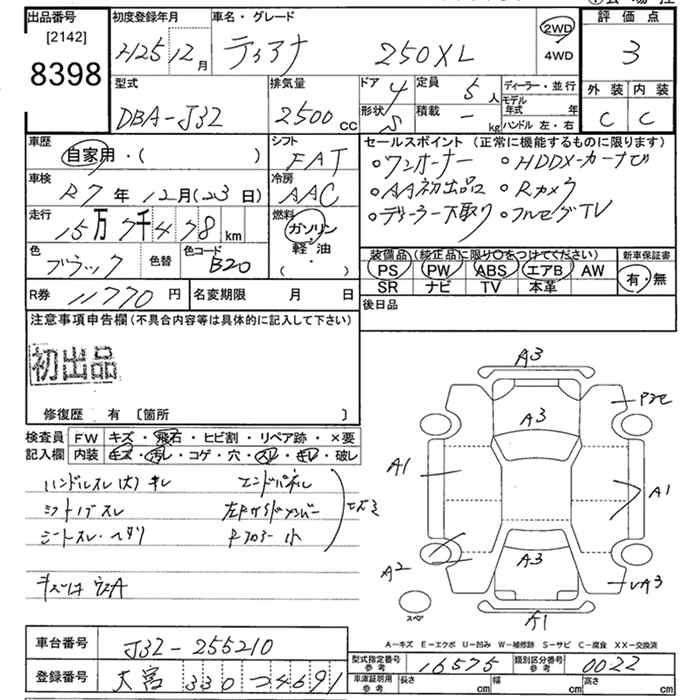 出品番号
[2142]
8398
初度登録年月
H25 12月
車名・グレード
ティアナ 250XL
2WD
4WD
評価点
3
外装 内装
C C
型式
DBA-J32
排気量
2500 cc
ドア 4
形状 S
定員 5人
積載 - kg
ディーラー・並行
モデル年式 年
ハンドル 左・右
車歴
自家用・( )
シフト
FAT
車検
R7年12月(23日)
冷房
AAC
走行
15万7千478 km
燃料
ガソリン
軽・油
( )
色
ブラック
色替
色コード
B20
R券 11770円
名変期限 月 日
セールスポイント(正常に機能するものに限ります)
○ワンオーナー ○HDDXーカーナビ
○AA初出品 ○Rカメラ
○ディーラー下取り ○フルセグTV
装備品(純正品に限り○をつけてください)
PS PW ABS エアB AW
SR ナビ TV 本革
新車保証書
有・無
後日品
注意事項申告欄(不具合内容等は具体的に記入して下さい)
初出品
修復歴 有 〔箇所 〕
検査員記入欄
FW キズ・飛石・ヒビ割・リペア跡・×要
内装 キズ・汚レ・コゲ・穴・スレ・キレ・破レ
ハンドルスレ(大)キレ エンドパネル
シフトノブスレ
シートスレ・ヘタリ 小
A3
A3
A1
A1
A2
A3
A1
スペア
A-キズ E-エクボ U-凹み W-補修跡 S-サビ C-腐食 XX-交換済
車台番号
J32-255210
登録番号
大宮 330 そ4691
型式指定番号 参考
16575
類別区分番号 参考
0022
車庫証明用 参考
長さ cm 幅 cm 高さ cm